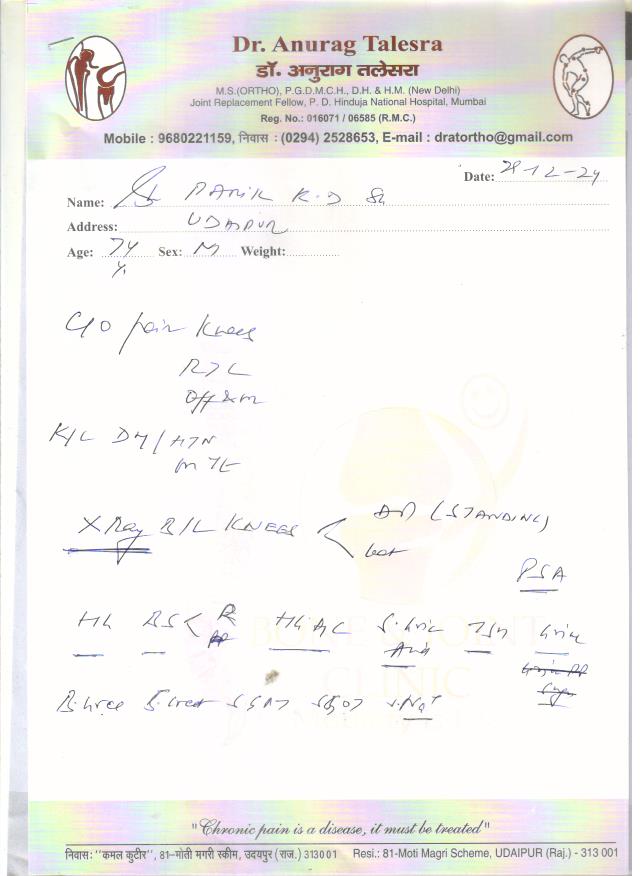 Dr. Anurag Talesra
डॉ. अनुराग तलेसरा
M.S.(ORTHO), P.G.D.M.C.H., D.H. & H.M. (New Delhi)
Joint Replacement Fellow, P. D. Hinduja National Hospital, Mumbai
Reg. No.: 016071 / 06585 (R.M.C.)
Mobile : 9680221159, निवास : (0294) 2528653, E-mail : dratortho@gmail.com
Date: -12-24
Name: K.D
Address: UDAIPUR
Age: 74 Sex: M Weight:
y.
C/O pain Knees
R>L
K/C DM/HTN
on TE
X Ray B/L KNEES AP (STANDING)
Lat
PSA
Hb BS F
PP
HbA1C S. Uric TSH Urine
Acid
Sugar
B. Urea S. Creat SGPT SGOT S. Na+
BONE & JOINT
CLINIC
"Chronic pain is a disease, it must be treated"
निवास: "कमल कुटीर", 81–मोती मगरी स्कीम, उदयपुर (राज.) 313001 Resi.: 81-Moti Magri Scheme, UDAIPUR (Raj.) - 313 001